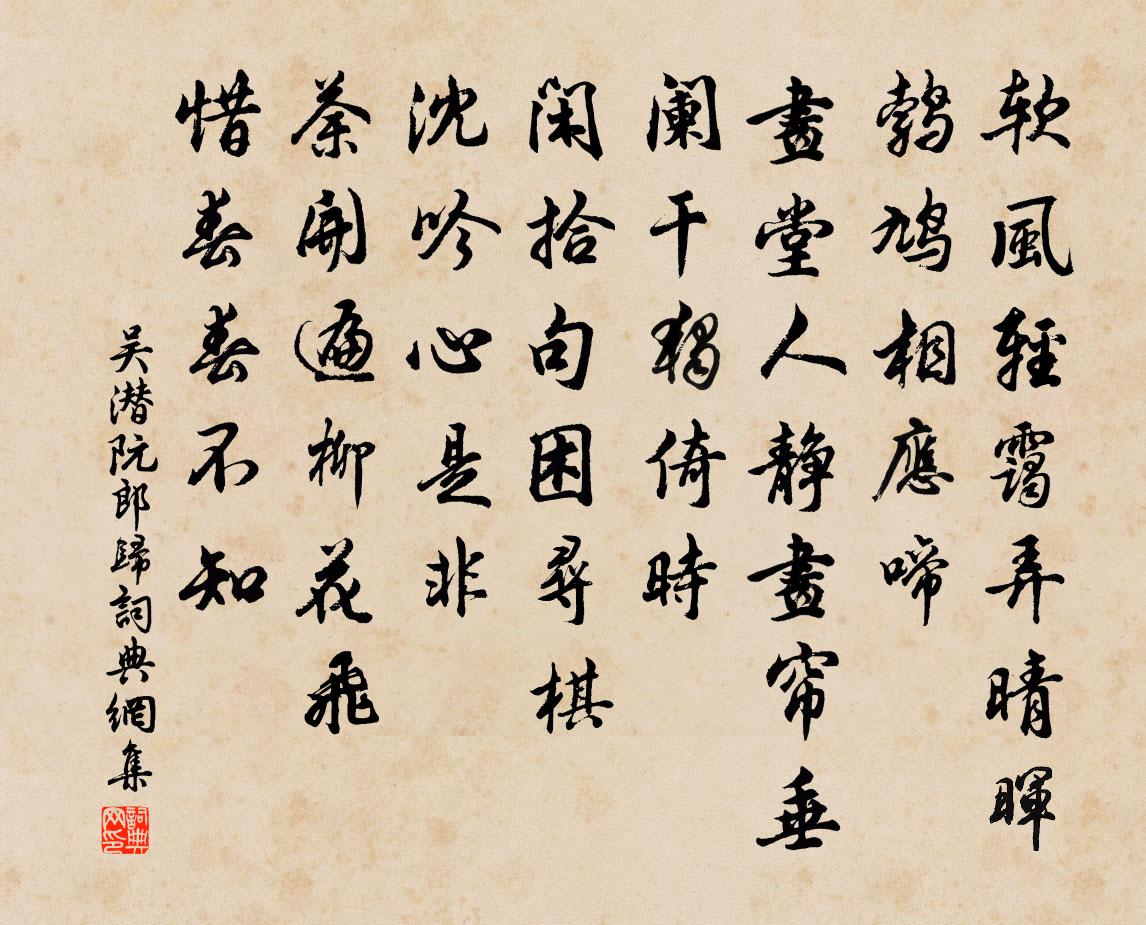 軟風輕靄弄晴暉
鵓鳩相應啼
畫堂人靜畫帘垂
闌干獨倚時
閑拾句困尋棋
沈吟心是非
荼開遍柳花飛
惜春春不知
吴潜阮郎歸詞典網集
詞典网印